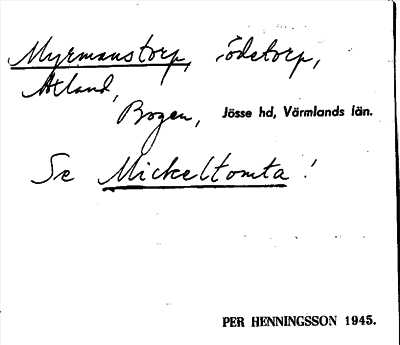 Myrmanstorp, ödetorp,
Axland,
Bogen, Jösse hd, Värmlands län.
Se Mickeltomta!
PER HENNINGSSON 1945.